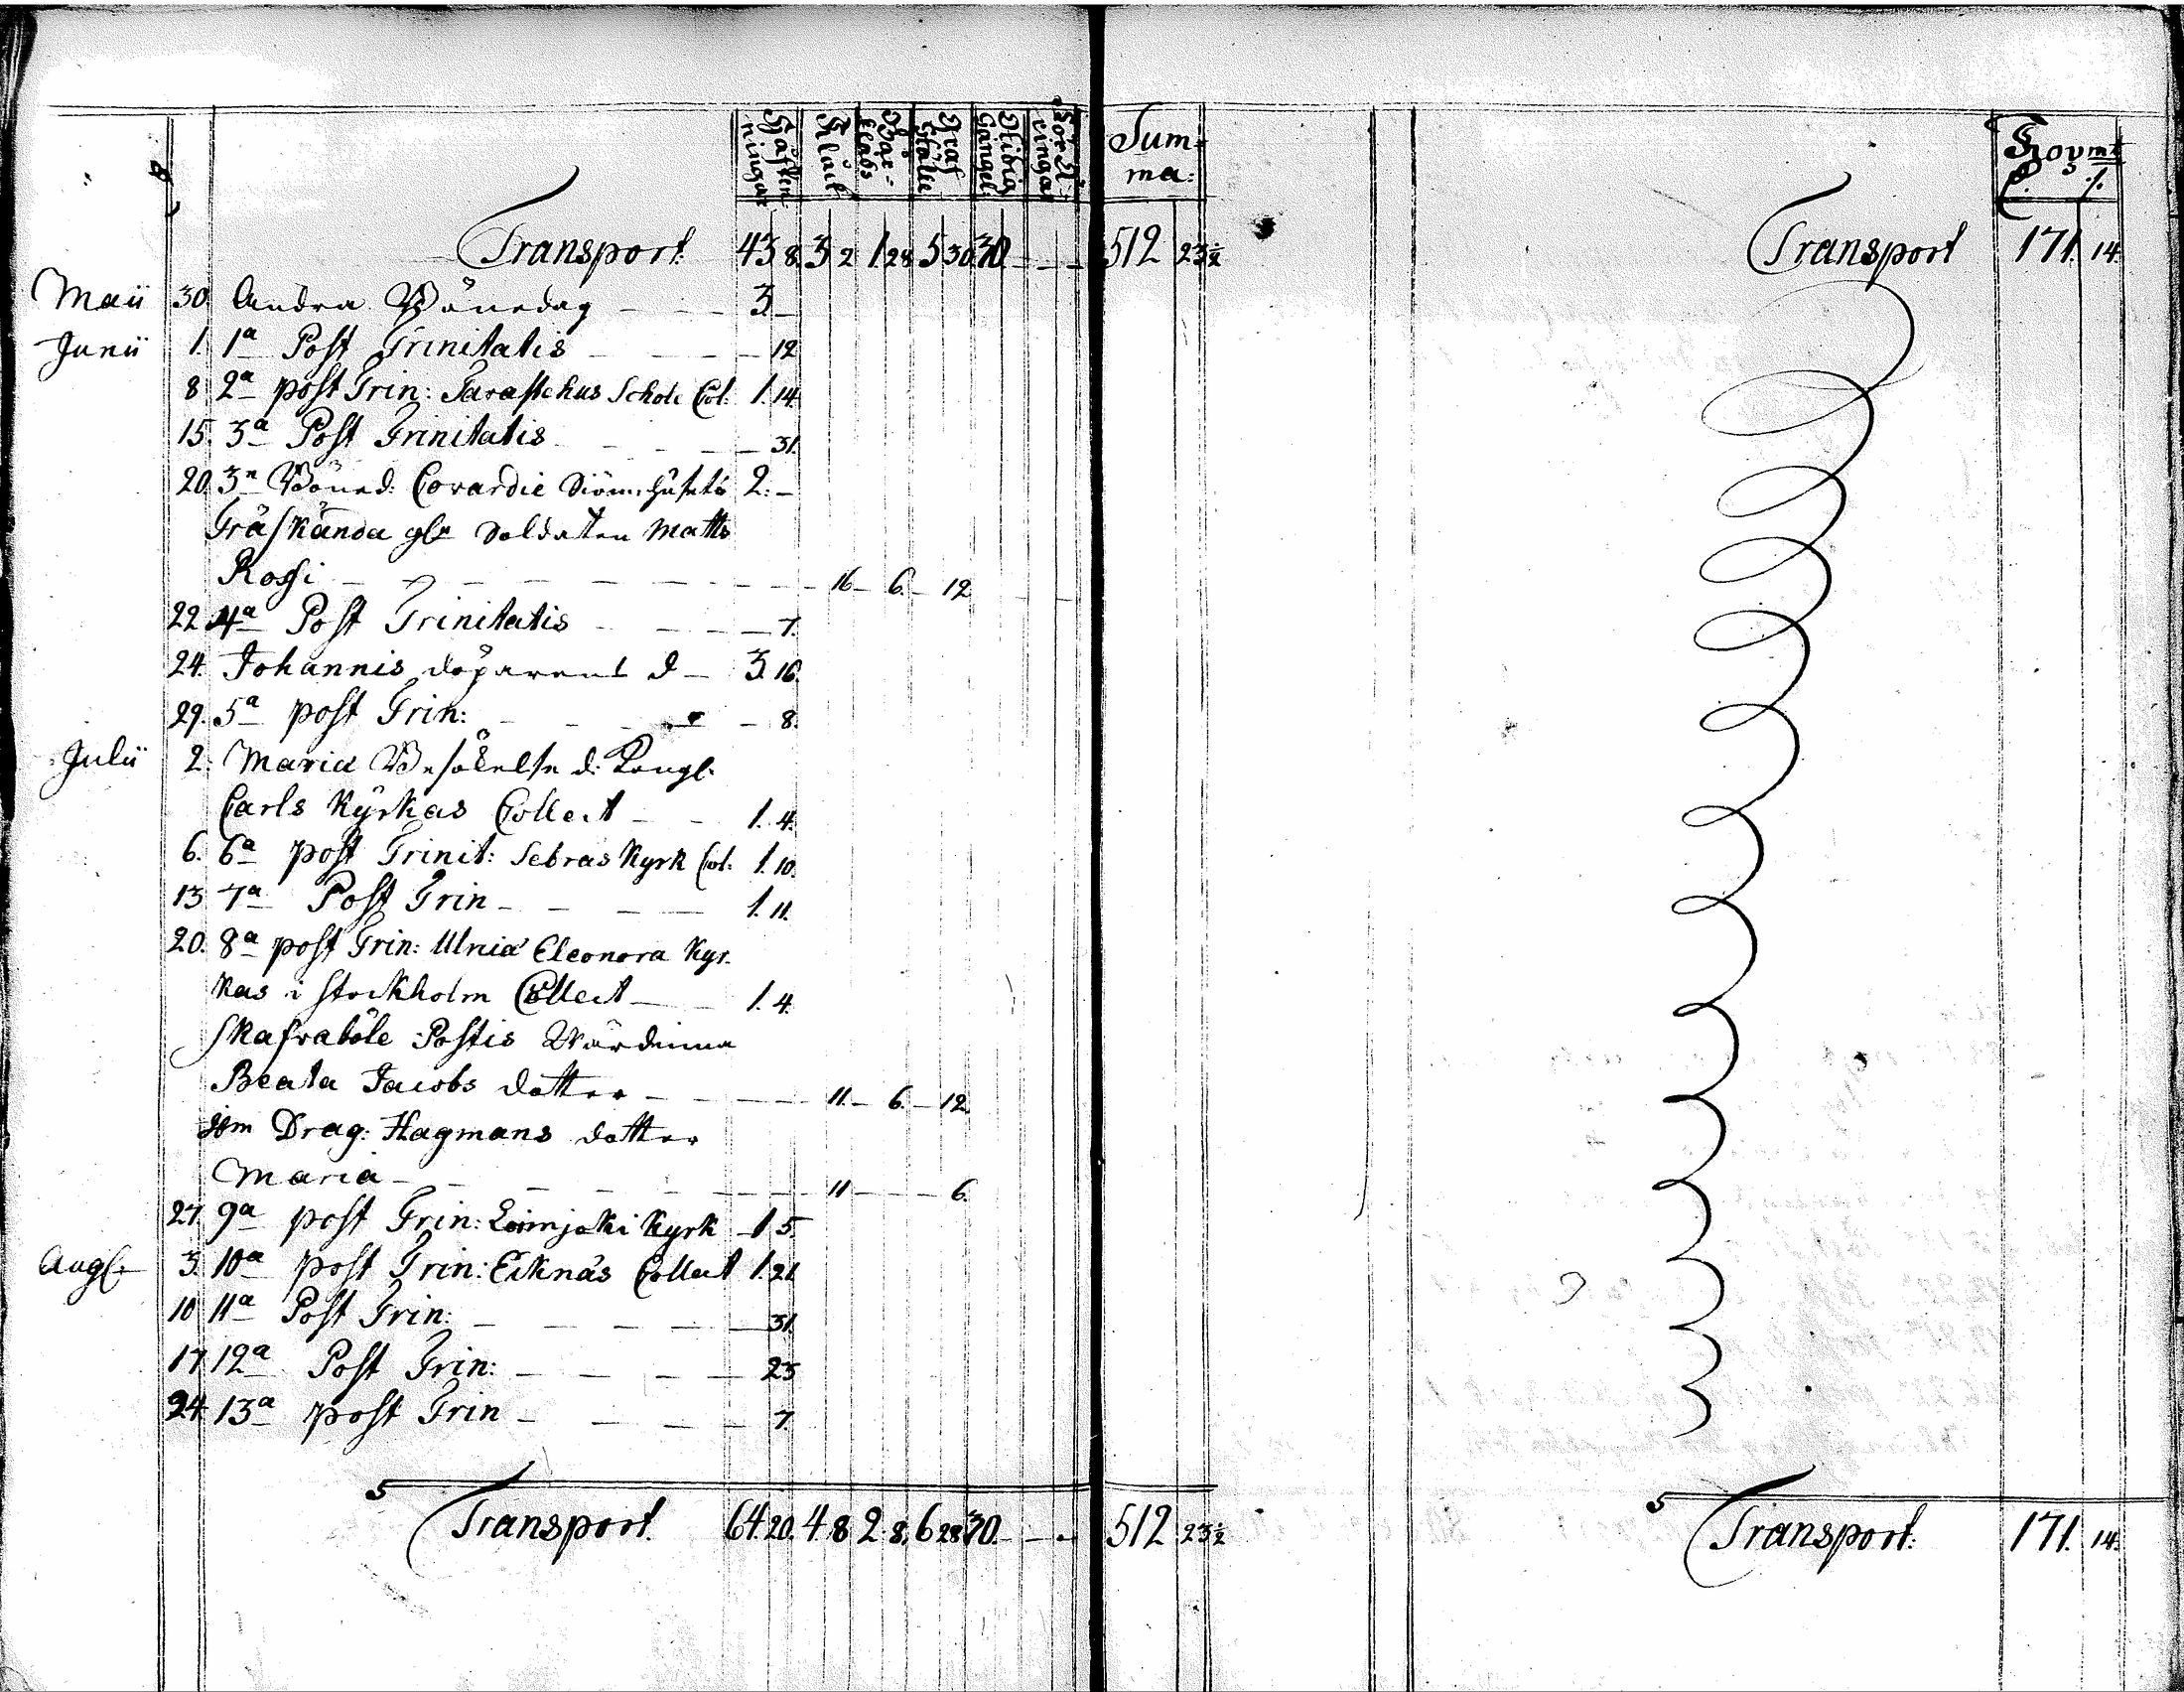 Håften ningar Klåck Bår- klädo Graf ställe Öfrig Gångel Förä ringar Sum- ma:
Transport 43 8. 3 2 1. 28 5 30 30. — — 512 23½
Maii 30. Andra Bönedag — — — 3. —
Junii 1. 1a Post Trinitatis — — — 12
8 2a post Trin: Tavastehus Schole Col: 1. 14.
15. 3a Post Trinitatis — — — 31.
20. 3n Böned: Siöm: husets 2. —
Gräskända Soldaten Matts
Rossi — — — 16 — 6. — 12
22 4a Post Trinitatis — — — 7.
24. Johannis döparens d — 3. 16.
29. 5a post Trin: — — — 8.
Julii 2. Mariæ Besökelse d: Kongl.
Carls Kyrkas Collect — — 1. 4.
6. 6a post Trinit: Kyrk Col: 1. 10.
13 7a Post Trin — — — 1. 11.
20. 8a post Trin: Ulrica Eleonora Kyr-
kas i Stockholm Collect — 1. 4.
Skafraböle Postis Värdinna
Beata Jacobs dotter — — — 11. — 6. — 12.
Drag: Hagmans dotter
Maria — — — 11 — — — 6.
27. 9a post Trin: Loimjoki Kyrk — 1 5.
Aug: 3. 10a post Trin: Eknäs Collect 1. 21.
10 11a Post Trin: — — — 31.
17. 12a Post Trin: — — — 23
24. 13a post Trin — — — 7.
Transport. 64. 20. 4. 8 2. 8. 6 28 30. — — 512 23½
Kopmt
Transport 171. 14.
Transport: 171. 14.